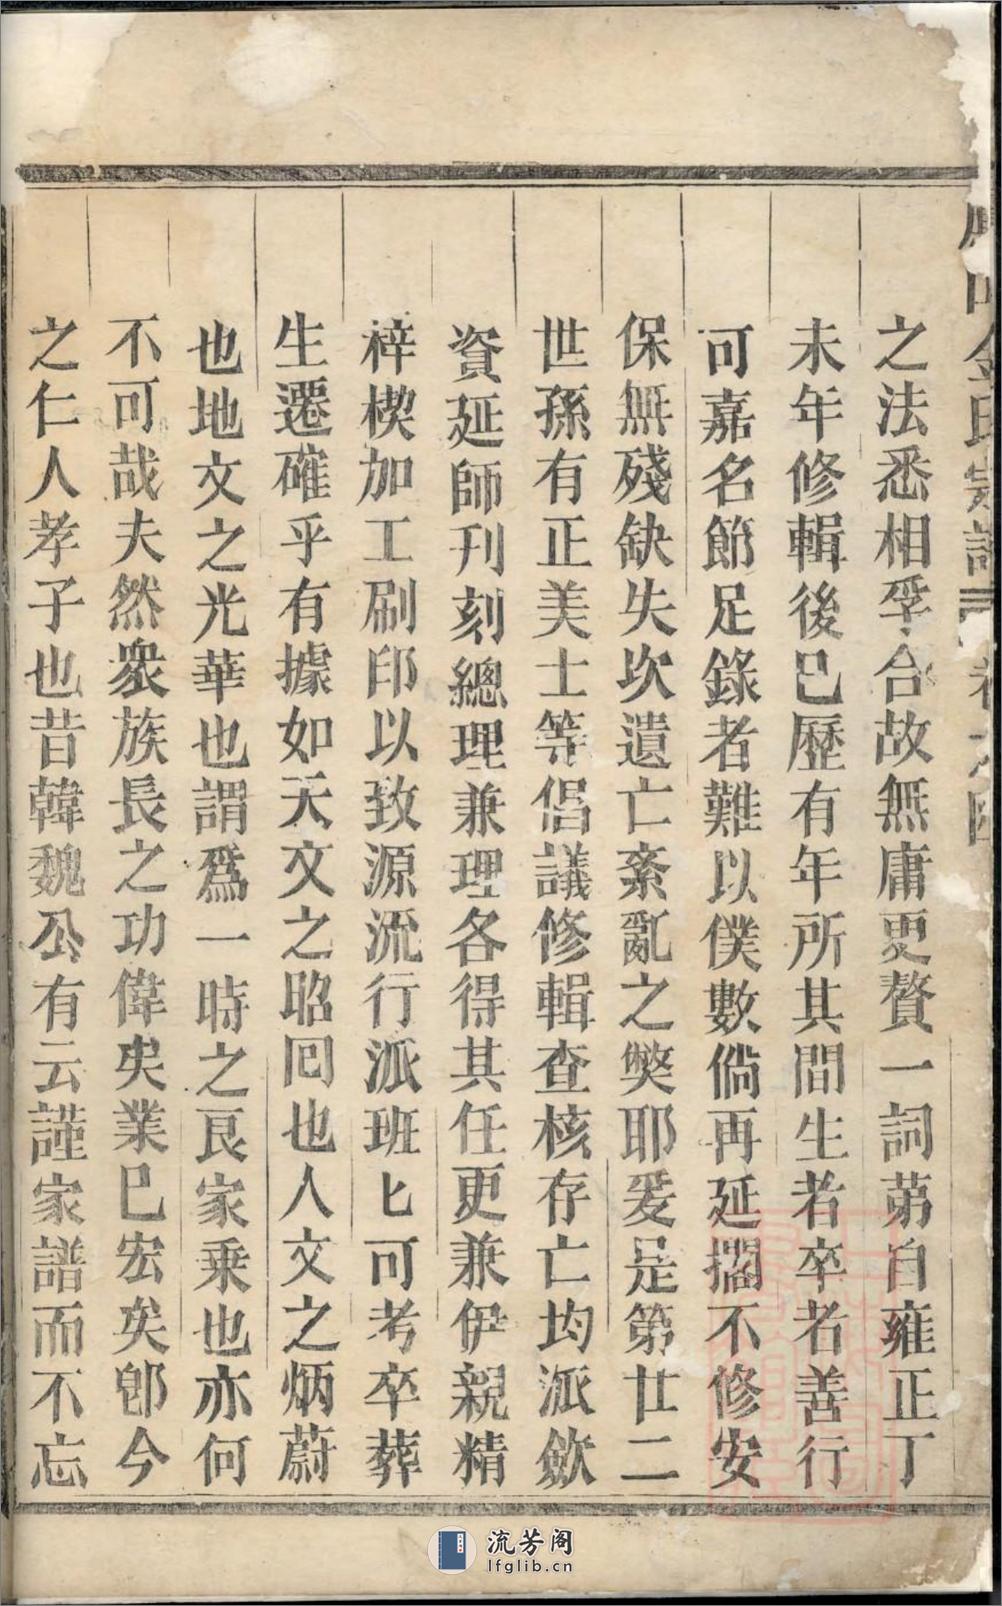 金氏宗譜
之法悉相孚合故無庸更贅一詞苐自雍正丁
未年修輯後已歷有年所其間生者卒者善行
可嘉名節足錄者難以僕數倘再延擱不修安
保無殘缺失次遺亡紊亂之獘耶爰是第廿二
世孫有正美士等倡議修輯查核存亡均派斂
資延師刊刻總理兼理各得其任更兼伊親精
梓楔加工刷印以致源流行派班匕可考卒葬
生遷確乎有據如天文之昭囘也人文之炳蔚
也地文之光華也謂爲一時之良家乗也亦何
不可哉夫然衆族長之功偉矣業已宏矣卽今
之仁人孝子也昔韓魏公有云謹家譜而不忘
流芳阁
lfglib.cn